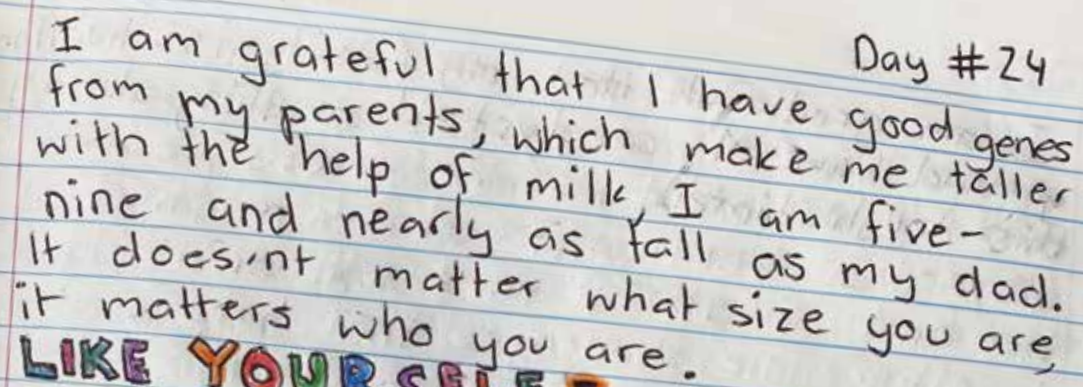 Day #24
I am grateful that I have good genes
from my parents, which make me taller
with the help of milk, I am five-
nine and nearly as tall as my dad.
It does,nt matter what size you are,
it matters who you are.
LIKE YOURSELF